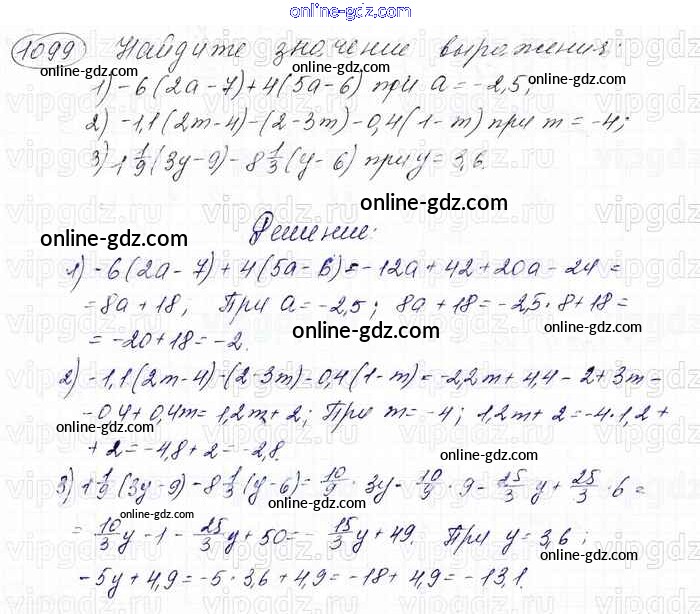 online-gdz.com
1099 Найдите значение выражения:
online-gdz.com online-gdz.com
1) -6(2a-7)+4(5a-6) при a=-2,5;
2) -1,1(2m-4)-(2-3m)-0,4(1-m) при m=-4;
3) 1 1/9(3y-9)-8 1/3(y-6) при y=3,6.
online-gdz.com
Решение:
online-gdz.com
1) -6(2a-7)+4(5a-6)=-12a+42+20a-24=
online-gdz.com
=8a+18; При a=-2,5; 8a+18=-2,5·8+18=
online-gdz.com
=-20+18=-2.
2) -1,1(2m-4)-(2-3m)-0,4(1-m)=-2,2m+4,4-2+3m-
online-gdz.com
-0,4+0,4m=1,2m+2; При m=-4; 1,2m+2=-4·1,2+
+2=-4,8+2=-2,8.
online-gdz.com
3) 1 1/9(3y-9)-8 1/3(y-6)=10/9·3y-10/9·9-25/3y+25/3·6=
online-gdz.com
=10/3y-1-25/3y+50=-15/3y+49. При y=3,6;
online-gdz.com
-5y+4,9=-5·3,6+4,9=-18+4,9=-13,1.
online-gdz.com